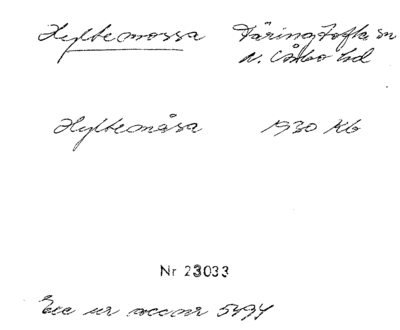 Hyltemossa Färingtofta sn
N. Åsbo hd
Hyltemåsa 1930 Kb
Nr 23033
5494